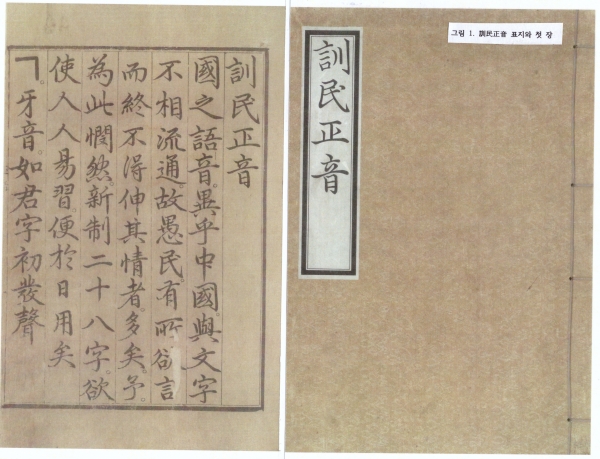 그림 1. 訓民正音 표지와 첫 장
訓民正音
訓民正音
國之語音。異乎中國。與文字
不相流通。故愚民。有所欲言
而終不得伸其情者。多矣。予。
為此憫然。新制二十八字。欲
使人人易習便於日用矣
ㄱ。牙音。如君字初發聲